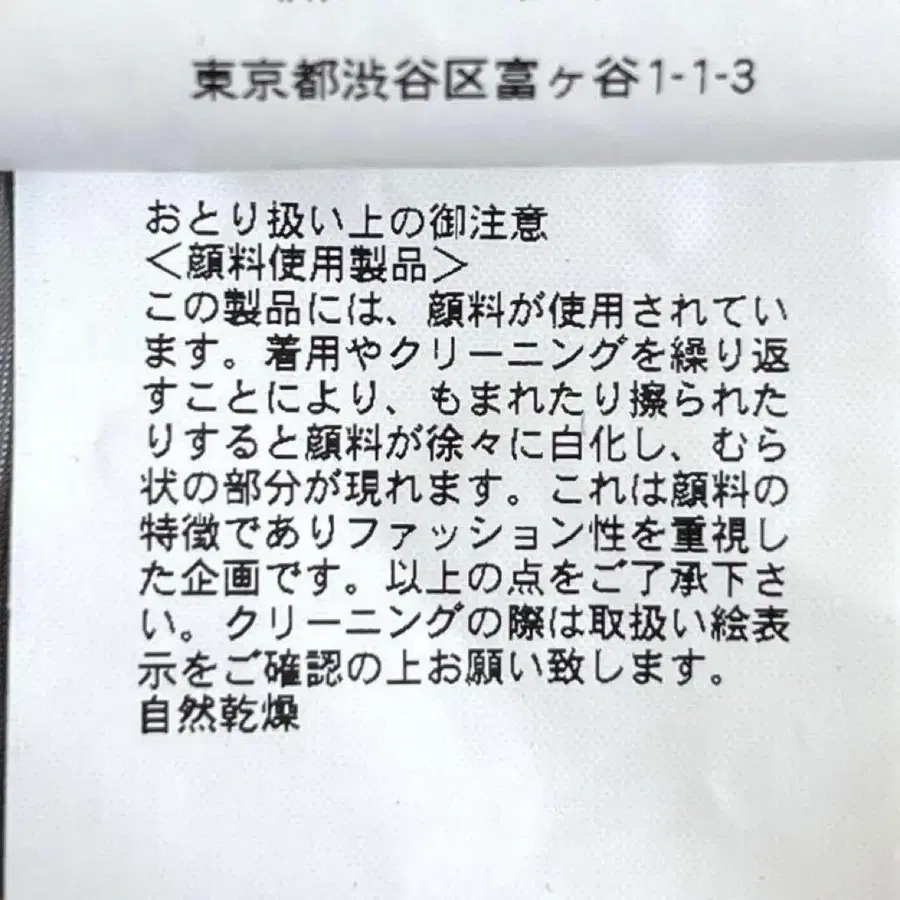 東京都渋谷区富ヶ谷1-1-3
おとり扱い上の御注意
＜顔料使用製品＞
この製品には、顔料が使用されてい
ます。着用やクリーニングを繰り返
すことにより、もまれたり擦られた
りすると顔料が徐々に白化し、むら
状の部分が現れます。これは顔料の
特徴でありファッション性を重視し
た企画です。以上の点をご了承下さ
い。クリーニングの際は取扱い絵表
示をご確認の上お願い致します。
自然乾燥